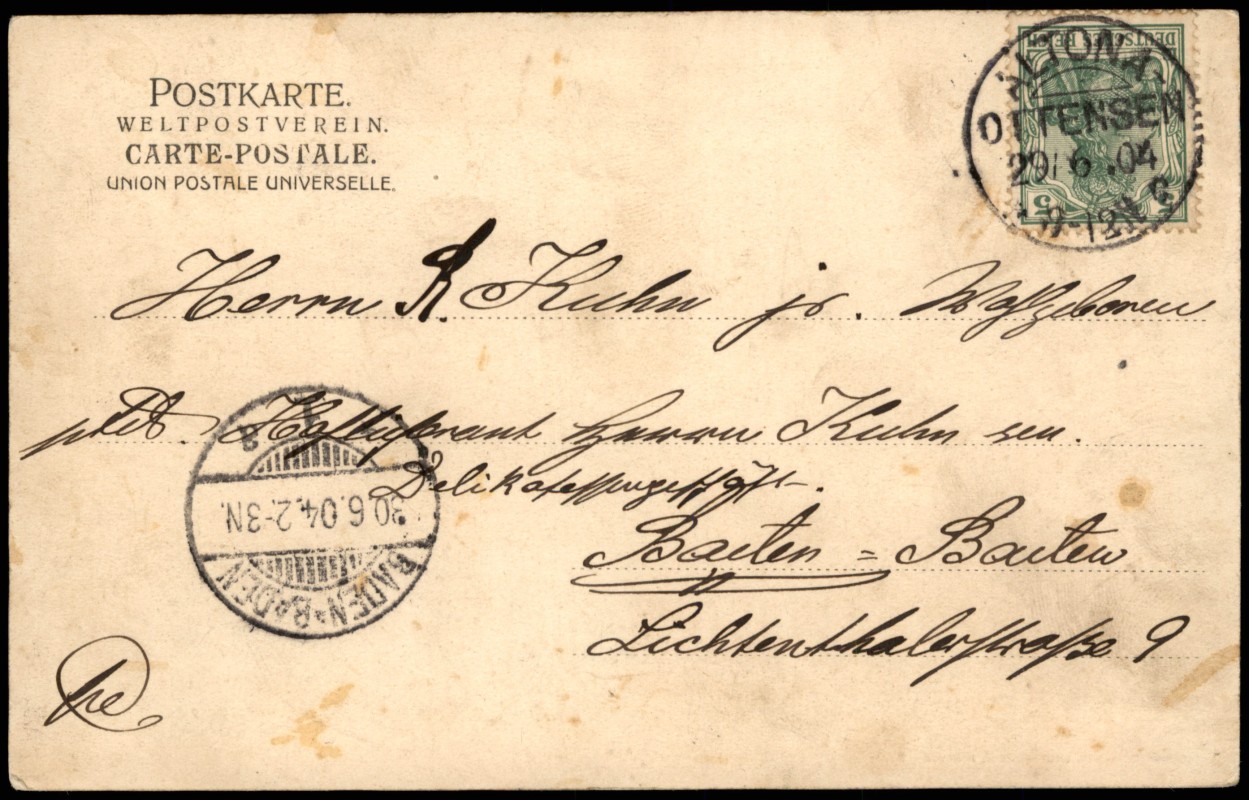 POSTKARTE.
WELTPOSTVEREIN.
CARTE-POSTALE.
UNION POSTALE UNIVERSELLE.
DEUTSCHES REICH
5 5
ALTONA-
OTTENSEN
29/6.04
9-12N
c
Herrn R. Kuhn jr. Wohlgeboren
Hoflieferant Herrn Kuhn sen.
Delikatessengeschäft.
Baden = Baden
Lichtenthalerstraße 9
1
a
30.6.04.2-3N.
BADEN-BADEN